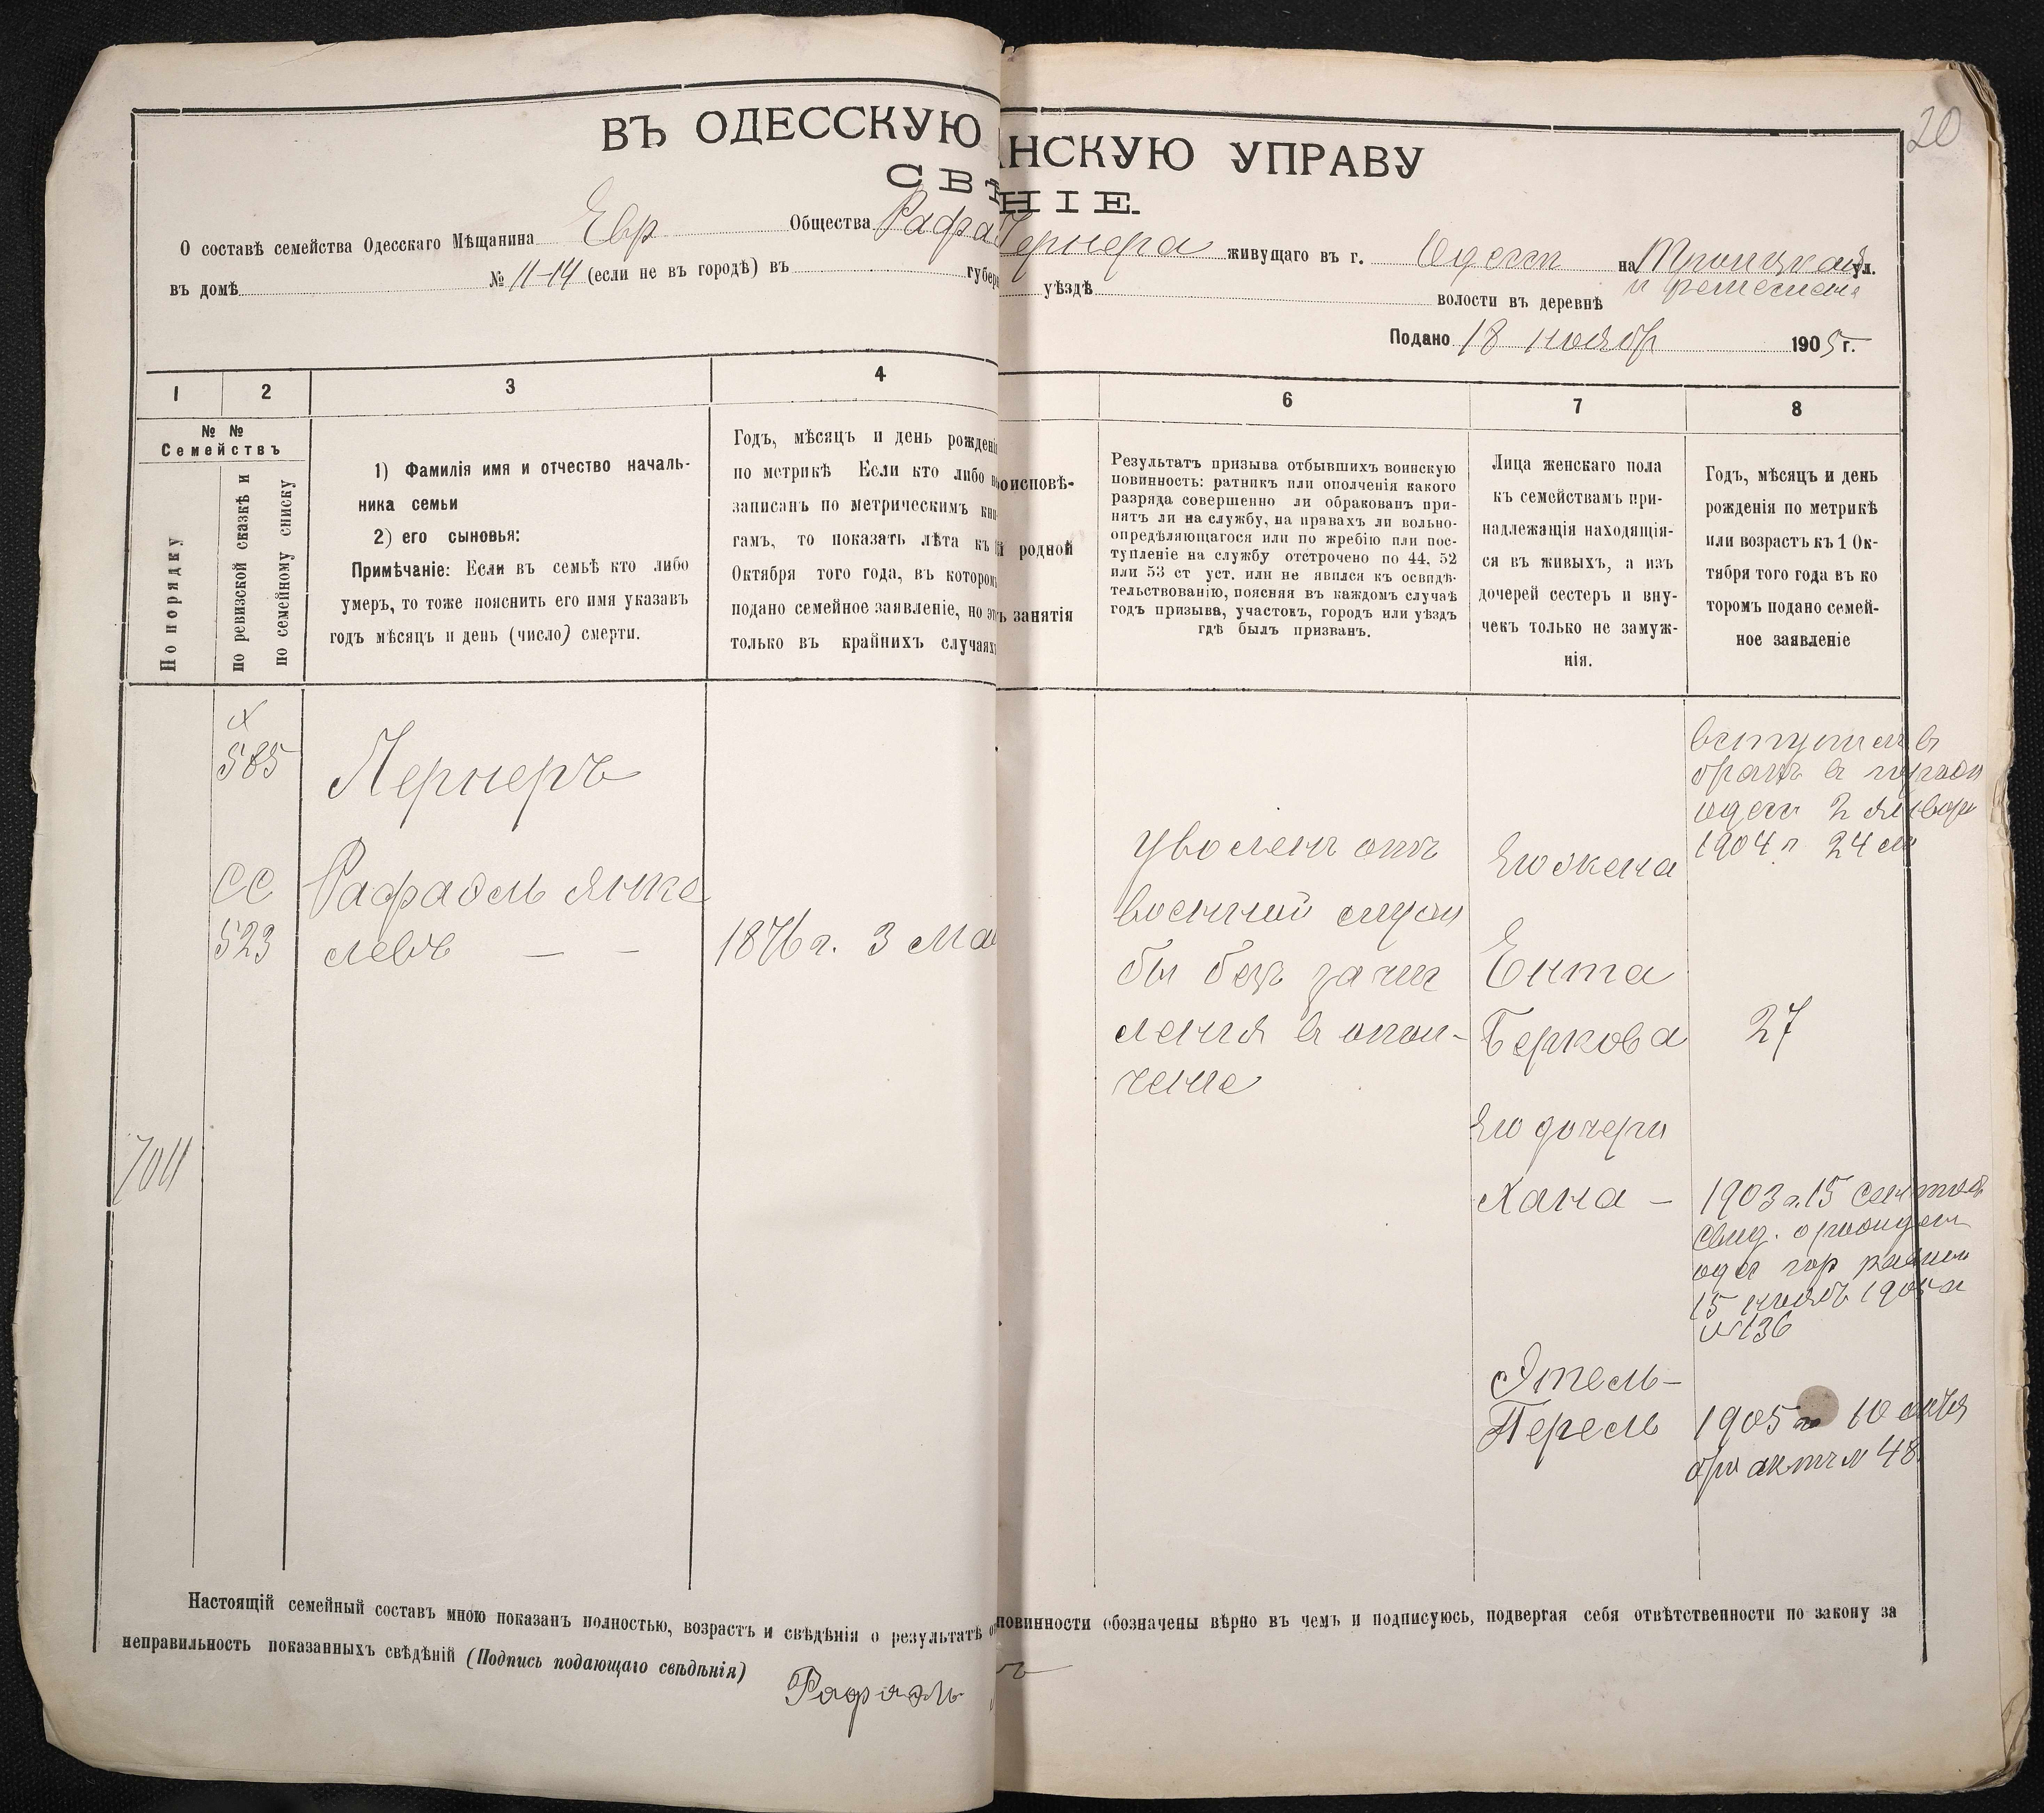 20
ВЪ ОДЕССКУЮ АНСКУЮ УПРАВУ
СВѢНІЕ.
О составѣ семейства Одесскаго Мѣщанина Евр Общества Рафа Лернера живущаго въ г. Одессѣ на Троицкая ул.
въ домѣ № 11-14 (если не въ городѣ) въ губер уѣздѣ волости въ деревнѣ и ремеслен
Подано 18 ноябр 1905 г.
1 2 3 4 6 7 8
№ №
Семействъ
По порядку
по ревизской сказкѣ и
по семейному списку
1) Фамилія имя и отчество началь-
ника семьи
2) его сыновья:
Примѣчаніе: Если въ семьѣ кто либо
умеръ, то тоже пояснить его имя указавъ
годъ мѣсяцъ и день (число) смерти.
Годъ, мѣсяцъ и день рожденія
по метрикѣ Если кто либо не
записанъ по метрическимъ кни
гамъ, то показать лѣта къ 1
Октября того года, въ которомъ
подано семейное заявленіе, но эт
только въ крайнихъ случаяхъ
роисповѣ-
й родной
ъ занятія
Результатъ призыва отбывшихъ воинскую
повинность: ратникъ или ополченія какого
разряда совершенно ли обракованъ при-
нятъ ли на службу, на правахъ ли вольно-
опредѣляющагося или по жребію или пос-
тупленіе на службу отстрочено по 44, 52
или 53 ст уст. или не явился къ освидѣ-
тельствованію, поясняя въ каждомъ случаѣ
годъ призыва, участокъ, городъ или уѣздъ
гдѣ былъ призванъ.
Лица женскаго пола
къ семействамъ при-
надлежащія находящія-
ся въ живыхъ, а изъ
дочерей сестеръ и вну-
чекъ только не замуж-
нія.
Годъ, мѣсяцъ и день
рожденія по метрикѣ
или возрастъ къ 1 Ок-
тября того года въ ко
торомъ подано семей-
ное заявленіе
585
Лернеръ
СС
523
Рафаэль Янке
левъ — —
1876 г. 3 Ма
701
Уволенъ отъ
военной служ
бы безъ зачис
ленія в опол-
чение
Его жена
Ента
Беркова
27
вступил в
бракъ в город
одес 2 январ
1904 г 24
Его дочери
Хана —
1903 г. 15 сентяб
свид. о рожден
одес гор раввин
15 ноябъ 1905 г
№ 136
Этель-
Перель
1905 г 10
актъ № 48
Настоящій семейный составъ мною показанъ полностью, возрастъ и свѣдѣнія о результатѣ о повинности обозначены вѣрно въ чемъ и подписуюсь, подвергая себя отвѣтственности по закону за
неправильность показанныхъ свѣдѣній (Подпись подающаго свѣдѣнія)
Рафаэль